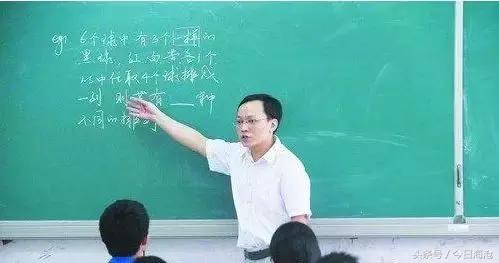 eg: 6个球中有3个一样的
黑球,红白黄各1个
从中任取4个球排成
一列 则共有___种
不同的排列
头条号 / 今日海沧